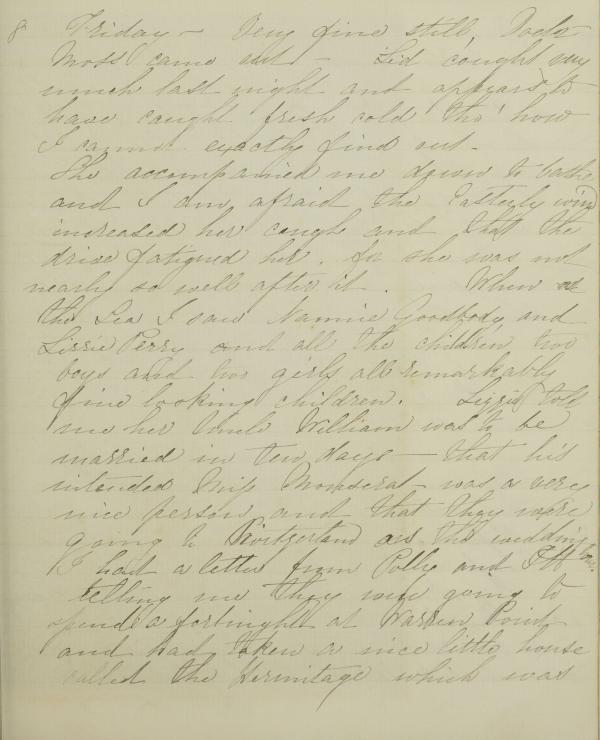 8 Friday – Very fine still, Doctr
Moss came out – Lid cought very
much last night and appears to
have caught fresh cold tho' how
I cannot exactly find out –
She accompanied me down to bathe
and I am afraid the Easterly wind
increased her cough and that the
drive fatigued her. for she was not
nearly so well after it. When at
the Sea I saw Nannie Goodbody and
Lizzie Perry and all the children two
boys and two girls all remarkably
fine looking children. Lizzie told
me her Uncle William was to be
married in ten days – that his
intended Miss Monserat was a very
nice person and that they were
going to Switzerland on the wedding tour.
I had a letter from Polly and
telling me they were going to
spend a fortnight at Warren Point
and had taken a nice little house
called the Hermitage which was